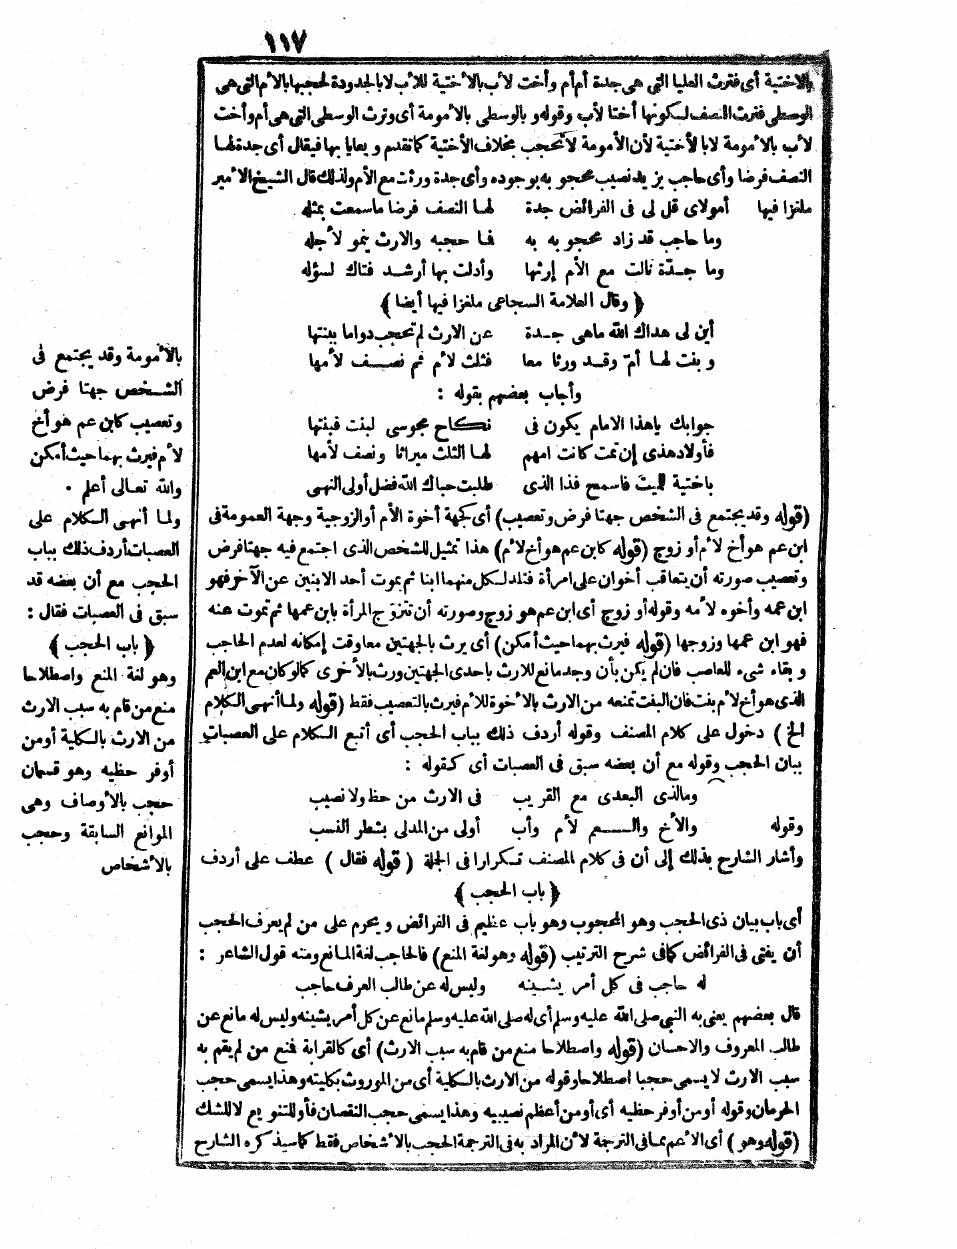 ١١٧
بالاختية أى فترث العليا التى هى جدة أم أم وأخت لأب بالأختية للأب لا بالجدودة لحجبها بالأم التى هى
الوسطى فترث النصف لكونها أختا لأب وقوله وبالوسطى بالأمومة أى وترث الوسطى التى هى أم وأخت
لأب بالأمومة لا بالأختية لأن الأمومة لا تحجب بخلاف الأختية كما تقدم ويعايا بها فيقال أى جدة لها
النصف فرضا وأى حاجب يزيد نصيب محجوبه بوجوده وأى جدة ورثت مع الأم ولذلك قال الشيخ الأمير
ملغزا فيها أمولاى قل لى فى الفرائض جدة لها النصف فرضا ما سمعت بمثله
وما حاجب قد زاد محجوبه به فما حجبه والارث ينمو لأجله
وما جدّة نالت مع الأم إرثها وأدلت بها أرشد فتاك لسؤله
﴿ وقال العلامة السجاعى ملغزا فيها أيضا ﴾
أبن لى هداك الله ماهى جدة عن الارث لم تحجب دواما ببنتها
وبنت لها أمّ وقد ورثا معا فثلث لأم ثم نصف لأمها
وأجاب بعضهم بقوله :
جوابك ياهذا الامام يكون فى نكاح مجوسى لبنت فبنتها
فأولاد هذى إن تمت كانت امهم لها الثلث ميراثا ونصف لأمها
باختية لميت فاسمح فذا الذى طلبت حباك الله فضل أولى النهى
(قوله وقد يجتمع فى الشخص جهتا فرض وتعصيب) أى كجهة أخوة الأم أو الزوجية وجهة العمومة فى
ابن عم هو أخ لأم أو زوج (قوله كابن عم هو أخ لأم) هذا تمثيل للشخص الذى اجتمع فيه جهتا فرض
وتعصيب صورته أن يتعاقب أخوان على امرأة فتلد لكل منهما ابنا ثم يموت أحد الابنين عن الآخر فهو
ابن عمه وأخوه لأمه وقوله أو زوج أى ابن عم هو زوج وصورته أن تتزوج المرأة بابن عمها ثم تموت عنه
فهو ابن عمها وزوجها (قوله فيرث بهما حيث أمكن) أى يرث بالجهتين معا وقت إمكانه لعدم الحاجب
وبقاء شىء للعاصب فان لم يكن بأن وجد مانع للارث باحدى الجهتين ورث بالأخرى كما لو كان مع ابن العم
الذى هو أخ لأم بنت فان البنت تمنعه من الارث بالأخوة للأم فيرث بالتعصيب فقط (قوله ولما أنهى الكلام
الخ ) دخول على كلام المصنف وقوله أردف ذلك بباب الحجب أى أتبع الكلام على العصبات
ببيان الحجب وقوله مع أن بعضه سبق فى العصبات أى كقوله :
ومالذى البعدى مع القريب فى الارث من حظ ولا نصيب
وقوله والأخ والعم لأم وأب أولى من المدلى بشطر النسب
وأشار الشارح بذلك إلى أن فى كلام المصنف تكرارا فى الجملة (قوله فقال ) عطف على أردف
﴿ باب الحجب ﴾
أى باب بيان ذى الحجب وهو المحجوب وهو باب عظيم فى الفرائض ويحرم على من لم يعرف الحجب
أن يفتى فى الفرائض كما فى شرح الترتيب (قوله وهو لغة المنع) فالحاجب لغة المانع ومنه قول الشاعر :
له حاجب فى كل أمر يشينه وليس له عن طالب العرف حاجب
قال بعضهم يعنى به النبى صلى الله عليه وسلم أى له صلى الله عليه وسلم مانع عن كل أمر يشينه وليس له مانع عن
طالب المعروف والاحسان (قوله واصطلاحا منع من قام به سبب الارث) أى كالقرابة فمنع من لم يقم به
سبب الارث لا يسمى حجبا اصطلاحا وقوله من الارث بالكلية أى من الموروث بكليته وهذا يسمى حجب
الحرمان وقوله أو من أوفر حظيه أى أو من أعظم نصيبيه وهذا يسمى حجب النقصان فأو للتنويع لا للشك
(قوله وهو ) أى الأعم مما فى الترجمة لأن المراد به فى الترجمة الحجب بالأشخاص فقط كما سيذكره الشارح
بالأمومة وقد يجتمع فى
الشخص جهتا فرض
وتعصيب كابن عم هو أخ
لأم فيرث بهما حيث أمكن
والله تعالى أعلم .
ولما أنهى الكلام على
العصبات أردف ذلك بباب
الحجب مع أن بعضه قد
سبق فى العصبات فقال :
﴿ باب الحجب ﴾
وهو لغة المنع واصطلاحا
منع من قام به سبب الارث
من الارث بالكلية أو من
أوفر حظيه وهو قسمان
حجب بالأوصاف وهى
الموانع السابقة وحجب
بالأشخاص